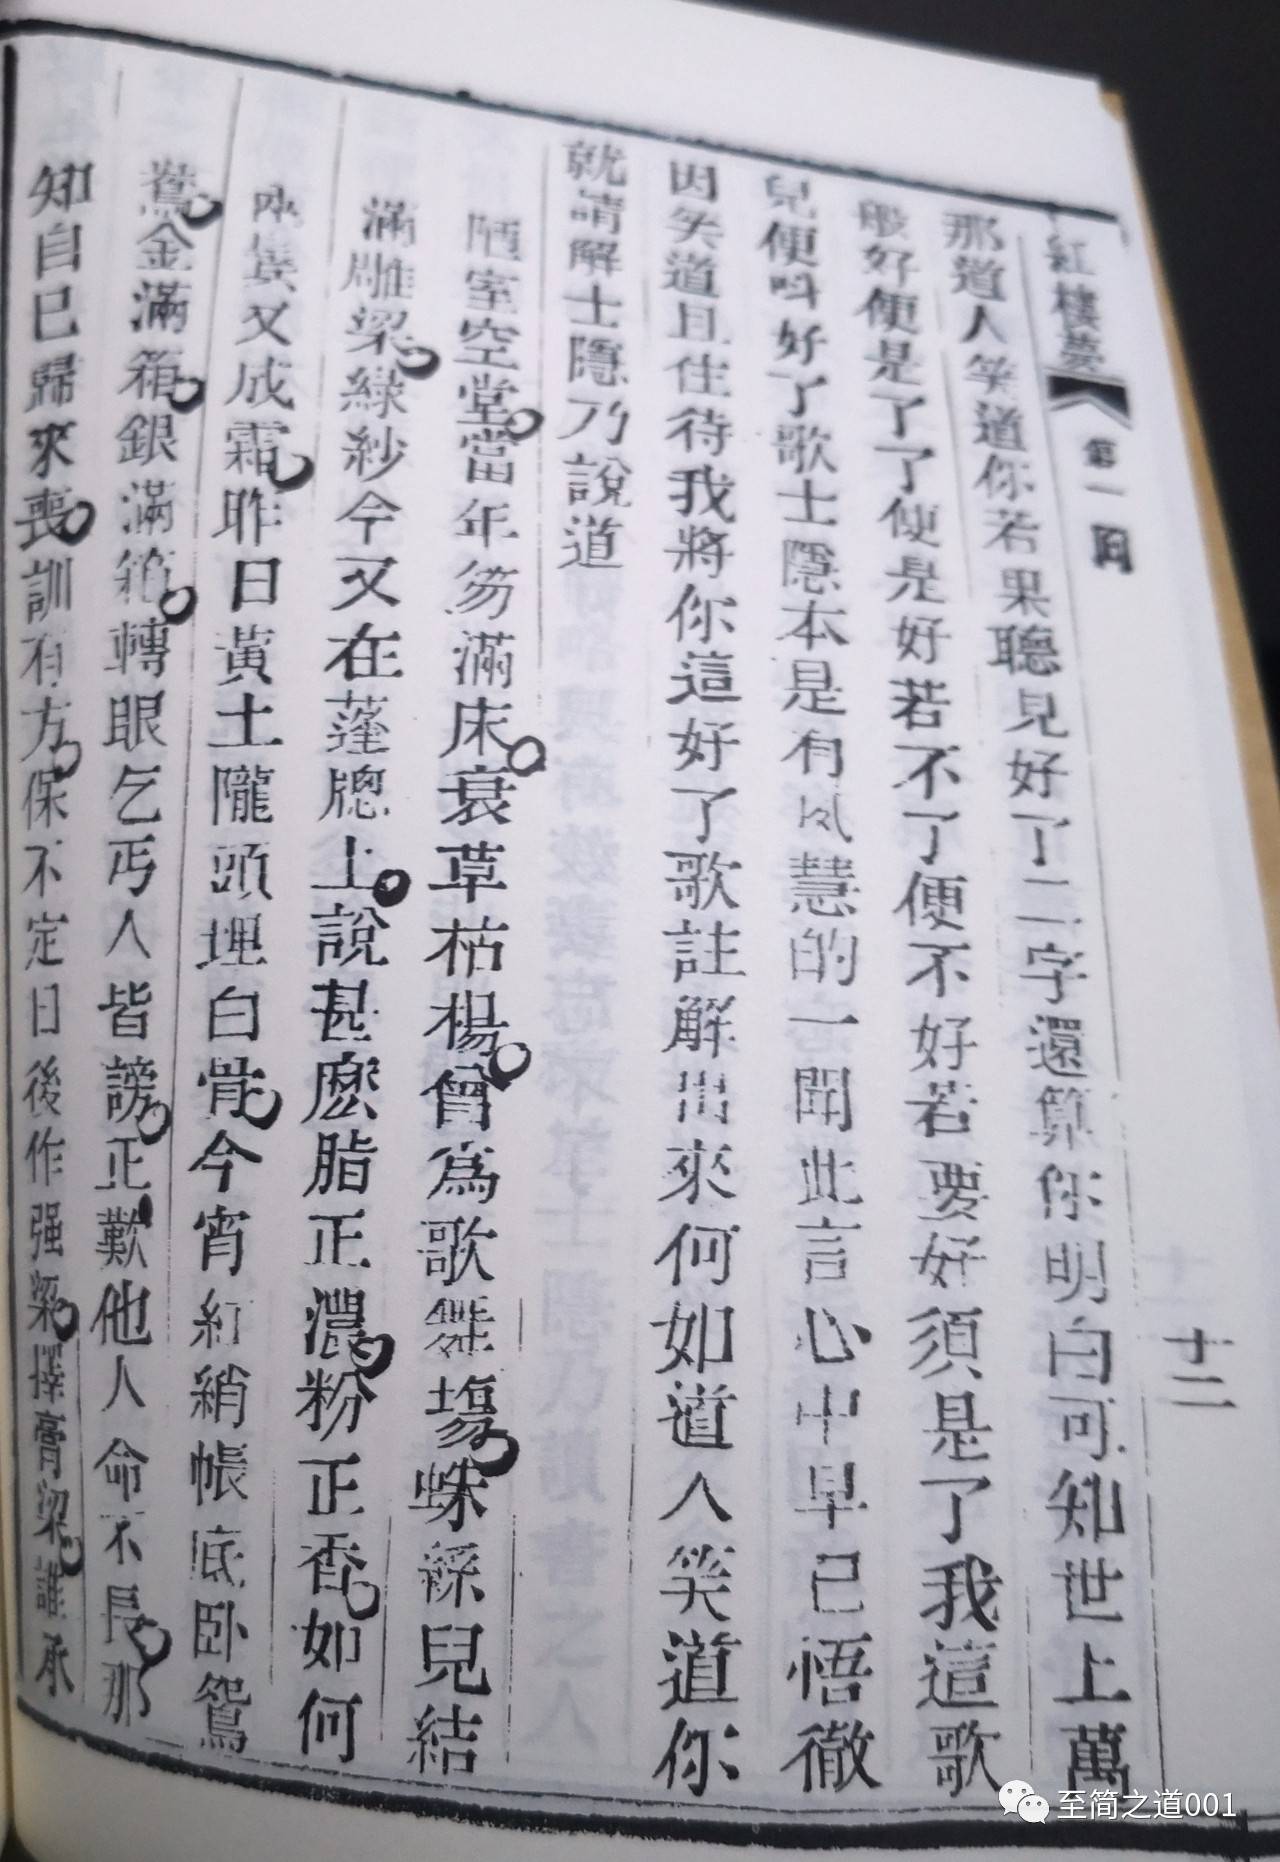 紅樓夢 第一回
十二
那道人笑道你若果聽見好了二字還算你明白可知世上萬
般好便是了了便是好若不了便不好若要好須是了我這歌
兒便叫好了歌士隱本是有夙慧的一聞此言心中早已悟徹
因笑道且住待我將你這好了歌註解出來何如道人笑道你
就請解士隱乃說道
陋室空堂當年笏滿床衰草枯楊曾為歌舞場蛛絲兒結
滿雕梁綠紗今又在蓬牕上說甚麽脂正濃粉正香如何
兩鬓又成霜昨日黃土隴頭埋白骨今宵紅綃帳底卧鴛
鴦金滿箱銀滿箱轉眼乞丐人皆謗正歎他人命不長那
知自己歸來喪訓有方保不定日後作强梁擇膏梁誰承
至简之道001